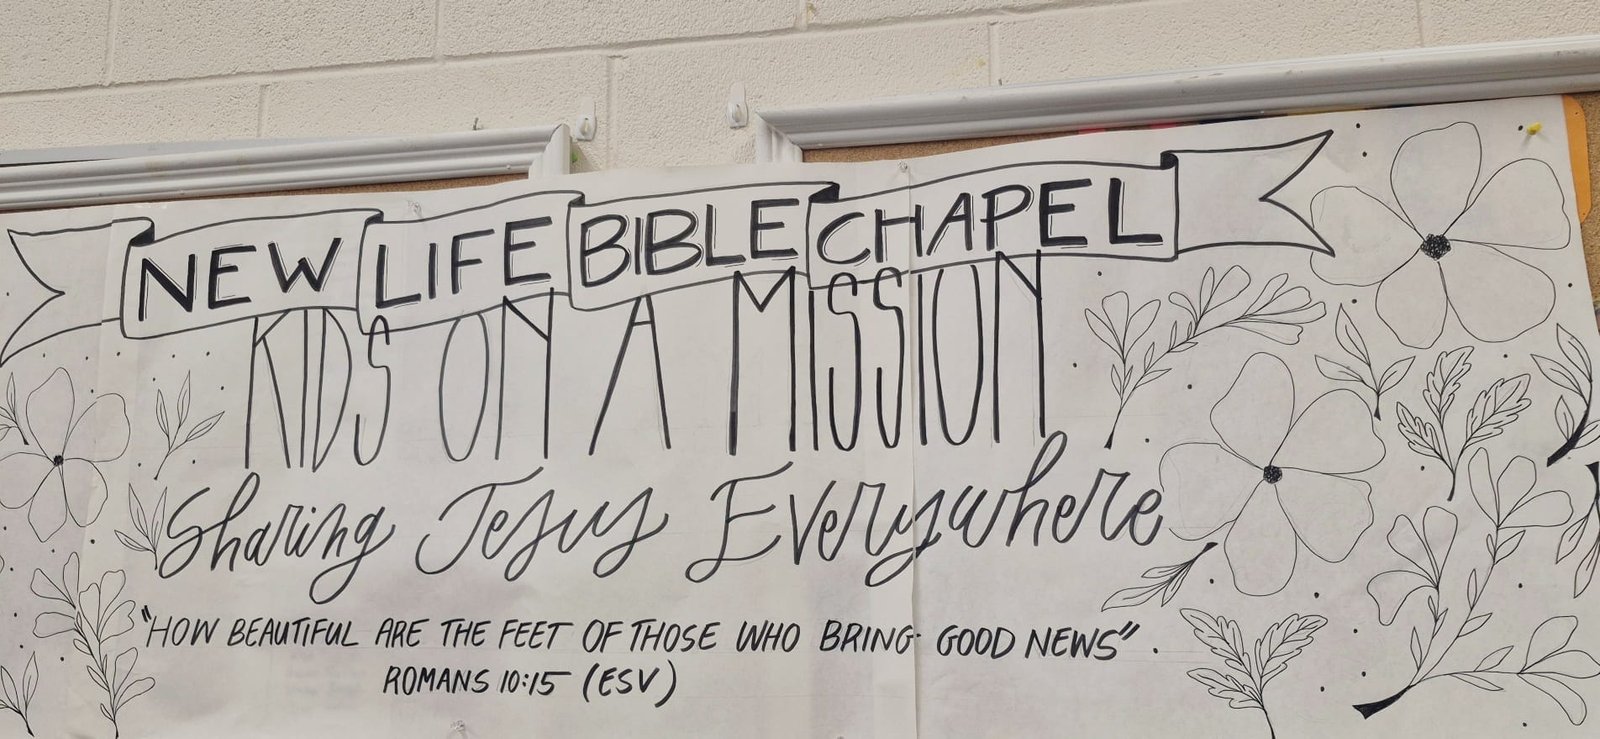 NEW LIFE BIBLE CHAPEL
KIDS ON A MISSION
Sharing Jesus Everywhere
"HOW BEAUTIFUL ARE THE FEET OF THOSE WHO BRING GOOD NEWS".
ROMANS 10:15 (ESV)